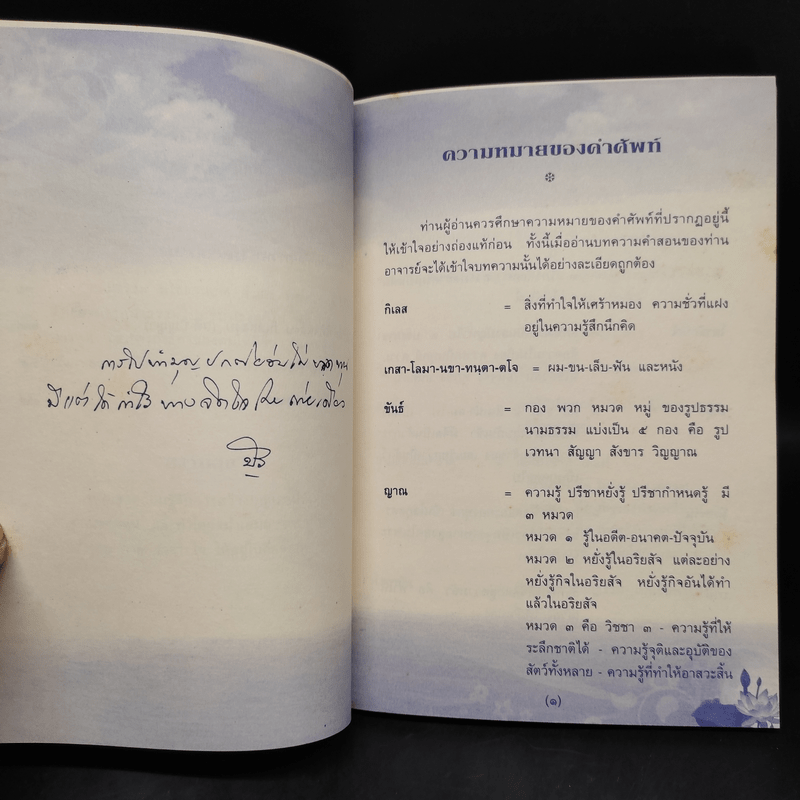 การไปทำบุญ
มีแต่ได้กำไร ทางจิตใจ
ความหมายของคำศัพท์
ท่านผู้อ่านควรศึกษาความหมายของคำศัพท์ที่ปรากฏอยู่นี้
ให้เข้าใจอย่างถ่องแท้ก่อน ทั้งนี้เมื่ออ่านบทความคำสอนของท่าน
อาจารย์จะได้เข้าใจบทความนั้นได้อย่างละเอียดถูกต้อง
กิเลส = สิ่งที่ทำใจให้เศร้าหมอง ความชั่วที่แฝง
อยู่ในความรู้สึกนึกคิด
เกสา-โลมา-นขา-ทนฺตา-ตโจ = ผม-ขน-เล็บ-ฟัน และหนัง
ขันธ์ = กอง พวก หมวด หมู่ ของรูปธรรม
นามธรรม แบ่งเป็น ๕ กอง คือ รูป
เวทนา สัญญา สังขาร วิญญาณ
ญาณ = ความรู้ ปรีชาหยั่งรู้ ปรีชากำหนดรู้ มี
๓ หมวด
หมวด ๑ รู้ในอดีต-อนาคต-ปัจจุบัน
หมวด ๒ หยั่งรู้ในอริยสัจ แต่ละอย่าง
หยั่งรู้กิจในอริยสัจ หยั่งรู้กิจอันได้ทำ
แล้วในอริยสัจ
หมวด ๓ คือ วิชชา ๓ - ความรู้ที่ให้
ระลึกชาติได้ - ความรู้จุติและอุบัติของ
สัตว์ทั้งหลาย - ความรู้ที่ทำให้อาสวะสิ้น
(๑)